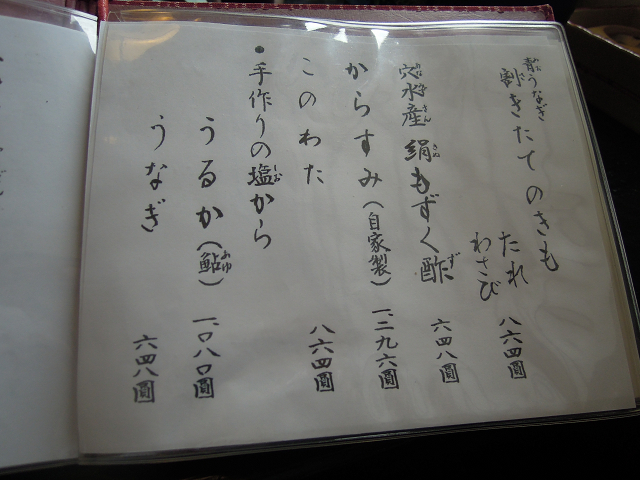 青うなぎ
割きたてのきも
たれ
わさび
八六四圓
穴水産 絹もずく酢
六四八圓
からすみ(自家製)
一、二九六圓
このわた
八六四圓
●手作りの塩から
うるか(鮎)
一、〇八〇圓
うなぎ
六四八圓